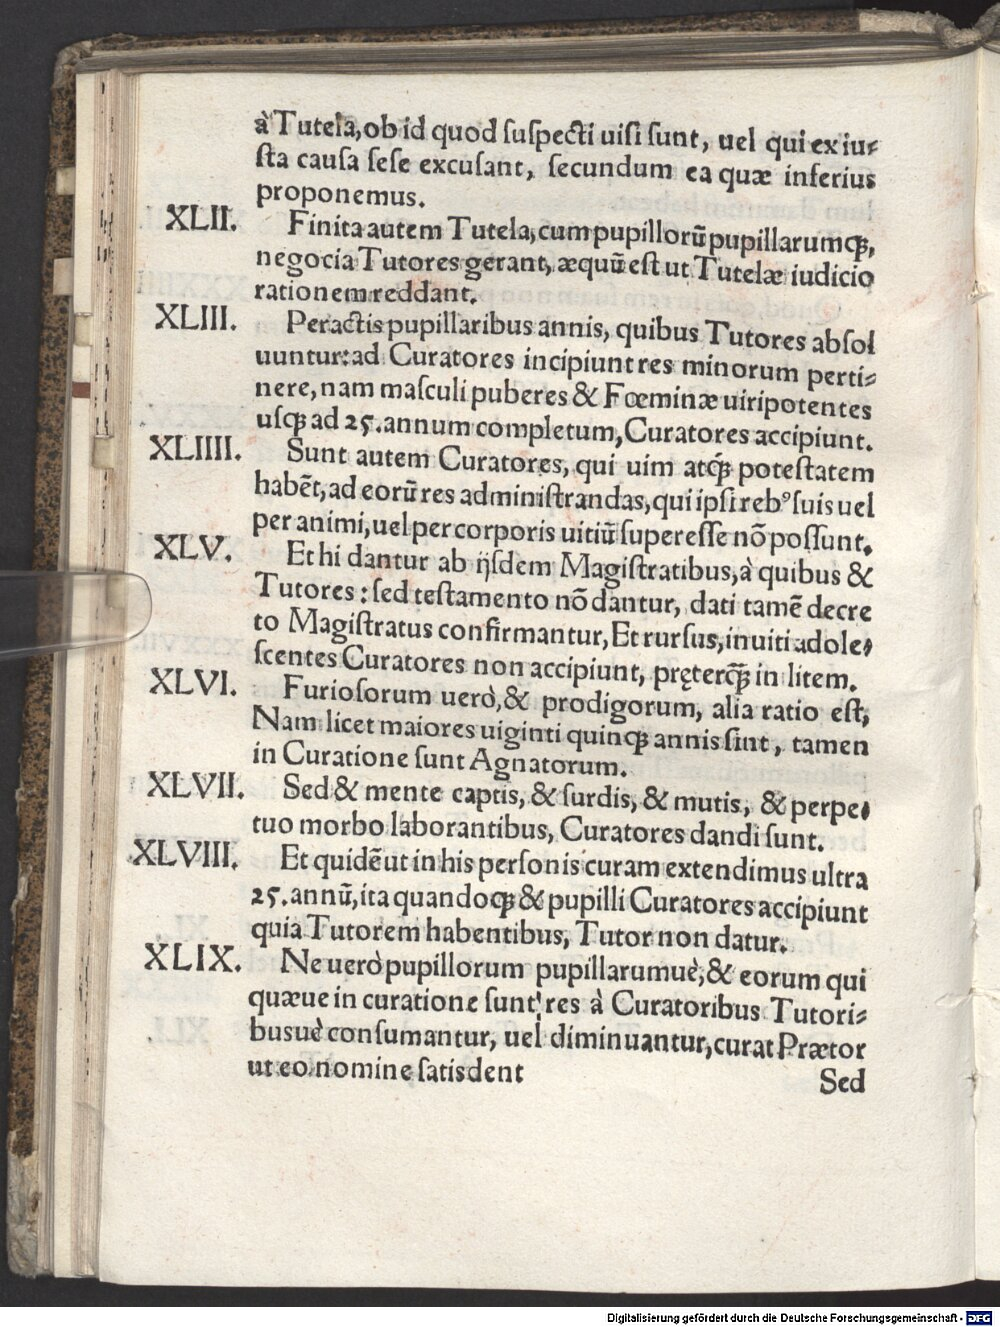 à Tutela, ob id quod ſuſpecti uiſi ſunt, uel qui ex iu⸗
ſta cauſa ſeſe excuſant, ſecundum ea quæ inferius
proponemus.
XLII. Finita autem Tutela, cum pupillorũ pupillarumq́;,
negocia Tutores gerant, æquũ eſt ut Tutelæ iudicio
rationem reddant.
XLIII. Peractis pupillaribus annis, quibus Tutores abſol
uuntur: ad Curatores incipiunt res minorum perti⸗
nere, nam maſculi puberes & Fœminæ uiripotentes
uſq; ad 25. annum completum, Curatores accipiunt.
XLIIII. Sunt autem Curatores, qui uim atq́; poteſtatem
habẽt, ad eorũ res adminiſtrandas, qui ipſi rebꝰ ſuis uel
per animi, uel per corporis uitiũ ſupereſſe nõ poſſunt.
XLV. Et hi dantur ab ijſdem Magiſtratibus, à quibus &
Tutores: ſed teſtamento nõ dantur, dati tamẽ decre
to Magiſtratus confirmantur, Et rurſus, inuiti adole⸗
ſcentes Curatores non accipiunt, pręterq́; in litem.
XLVI. Furioſorum uerò, & prodigorum, alia ratio eſt,
Nam licet maiores uiginti quinq; annis ſint, tamen
in Curatione ſunt Agnatorum.
XLVII. Sed & mente captis, & ſurdis, & mutis, & perpe⸗
tuo morbo laborantibus, Curatores dandi ſunt.
XLVIII. Et quidẽ ut in his perſonis curam extendimus ultra
25. annũ, ita quandoq; & pupilli Curatores accipiunt
quia Tutorem habentibus, Tutor non datur.
XLIX. Ne uerò pupillorum pupillarumuè, & eorum qui
quæue in curatione ſunt, res à Curatoribus Tutori⸗
busuè conſumantur, uel diminuantur, curat Prætor
ut eo nomine ſatisdent
Sed
Digitalisierung gefördert durch die Deutsche Forschungsgemeinschaft - DFG